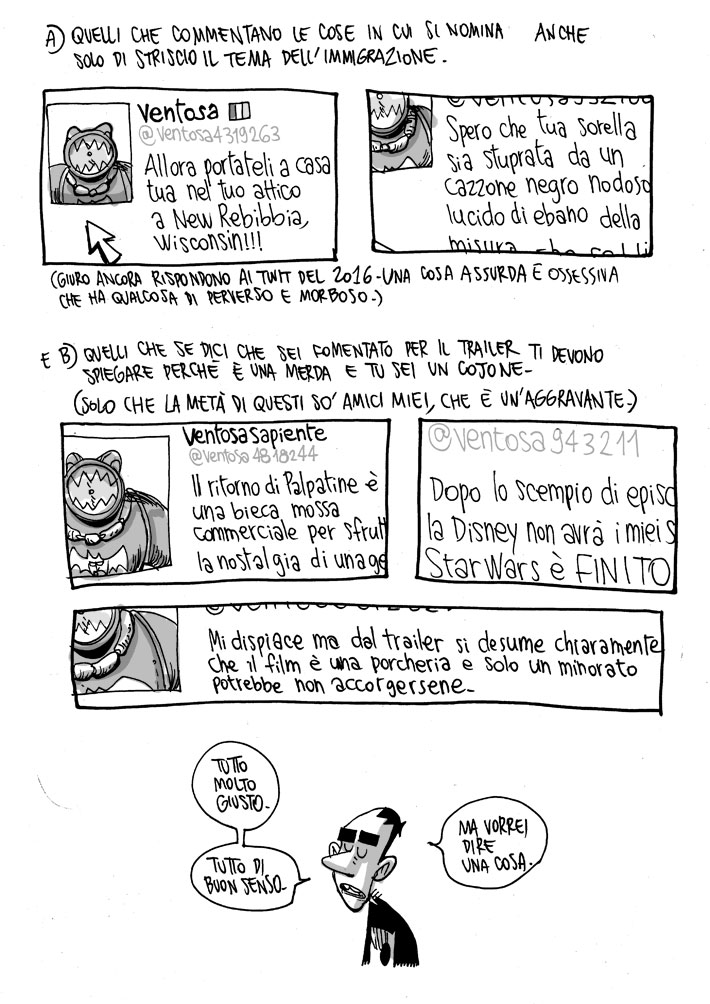 A) QUELLI CHE COMMENTANO LE COSE IN CUI SI NOMINA ANCHE
SOLO DI STRISCIO IL TEMA DELL'IMMIGRAZIONE.
Ventosa
@ventosa4319263
Allora portateli a casa
tua nel tuo attico
a New Rebibbia,
Wisconsin!!!
Spero che tua sorella
sia stuprata da un
cazzone negro nodoso
lucido di ebano della
misura che
(GIURO ANCORA RISPONDONO AI TWIT DEL 2016-UNA COSA ASSURDA E OSSESSIVA
CHE HA QUALCOSA DI PERVERSO E MORBOSO.)
E B) QUELLI CHE SE DICI CHE SEI FOMENTATO PER IL TRAILER TI DEVONO
SPIEGARE PERCHÈ È UNA MERDA E TU SEI UN COJONE-
(SOLO CHE LA METÀ DI QUESTI SO' AMICI MIEI, CHE È UN'AGGRAVANTE.)
Ventosa Sapiente
@ventosa4818244
Il ritorno di Palpatine è
una bieca mossa
commerciale per sfrutt
la nostalgia di una ge
@ventosa943211
Dopo lo scempio di episo
la Disney non avrà i miei s
Star Wars è FINITO
Mi dispiace ma dal trailer si desume chiaramente
che il film è una porcheria e solo un minorato
potrebbe non accorgersene-
TUTTO
MOLTO
GIUSTO.
TUTTO DI
BUON SENSO-
MA VORREI
DIRE
UNA COSA.